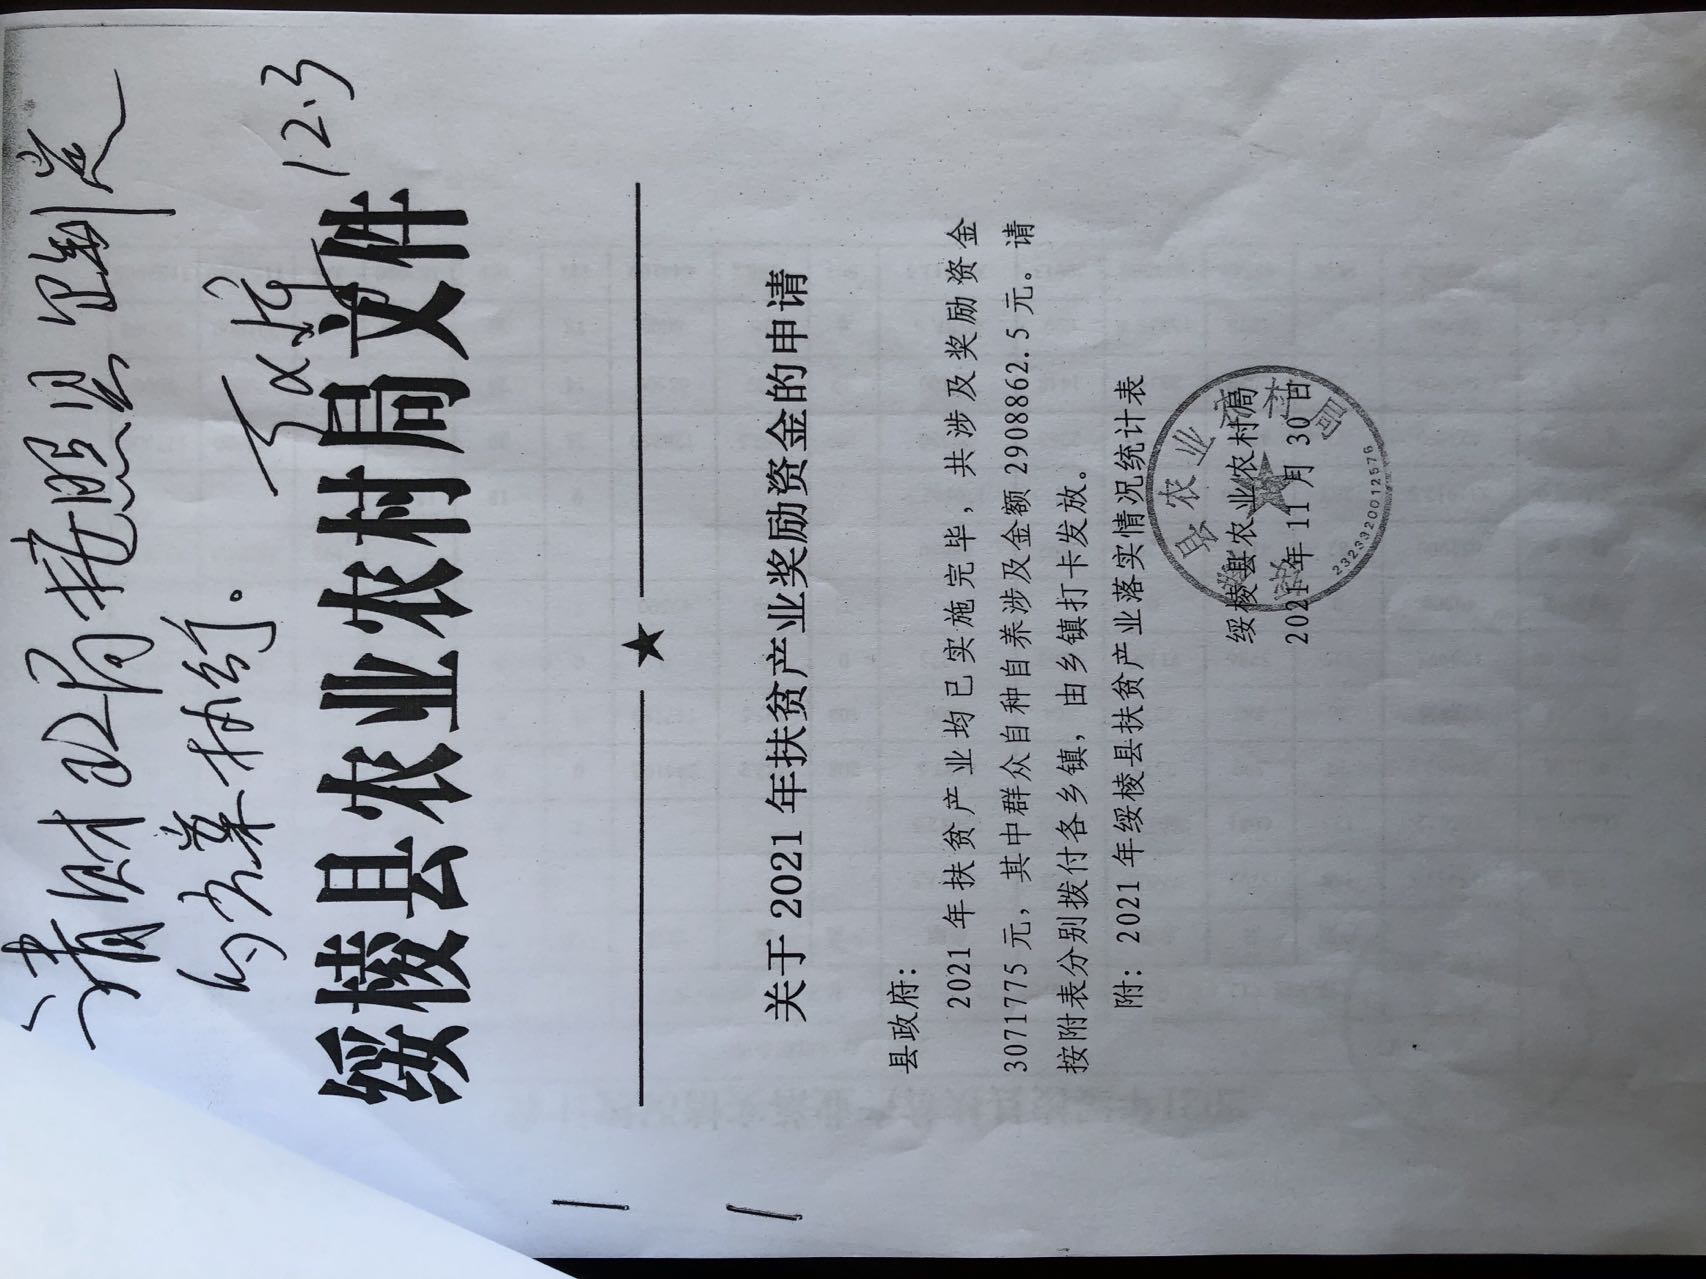 请财政局按照
12.3
绥棱县农业农村局文件
关于2021年扶贫产业奖励资金的申请
县政府：
2021年扶贫产业均已实施完毕，共涉及奖励资金
3071775元，其中群众自种自养涉及金额2908862.5元。请
按附表分别拨付各乡镇，由乡镇打卡发放。
附：2021年绥棱县扶贫产业落实情况统计表
绥棱县农业农村局
2021年11月30日
2323320012576